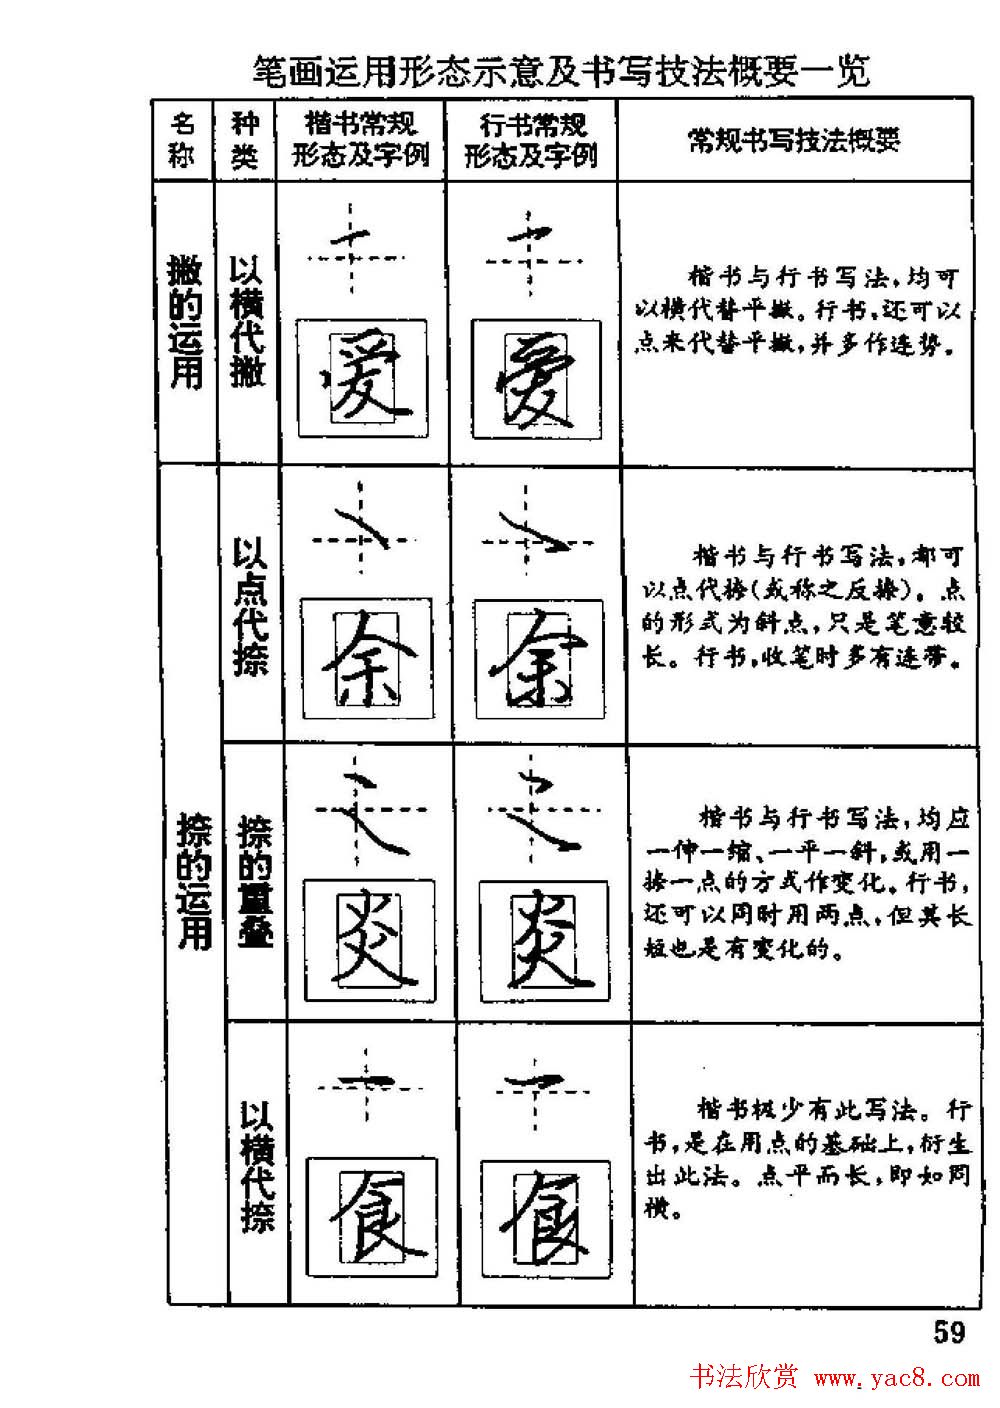 笔画运用形态示意及书写技法概要一览
名称
种类
楷书常规
形态及字例
行书常规
形态及字例
常规书写技法概要
撇的运用
以横代撇
爱
爱
楷书与行书写法,均可
以横代替平撇。行书,还可以
点来代替平撇,并多作连势。
捺的运用
以点代捺
余
余
楷书与行书写法,都可
以点代捺(或称之反捺)。点
的形式为斜点,只是笔意较
长。行书,收笔时多有连带。
捺的重叠
炎
炎
楷书与行书写法,均应
一伸一缩、一平一斜,或用一
捺一点的方式作变化。行书,
还可以同时用两点,但其长
短也是有变化的。
以横代捺
食
食
楷书极少有此写法。行
书,是在用点的基础上,衍生
出此法。点平而长,即如同
横。
59
书法欣赏 www.yac8.com